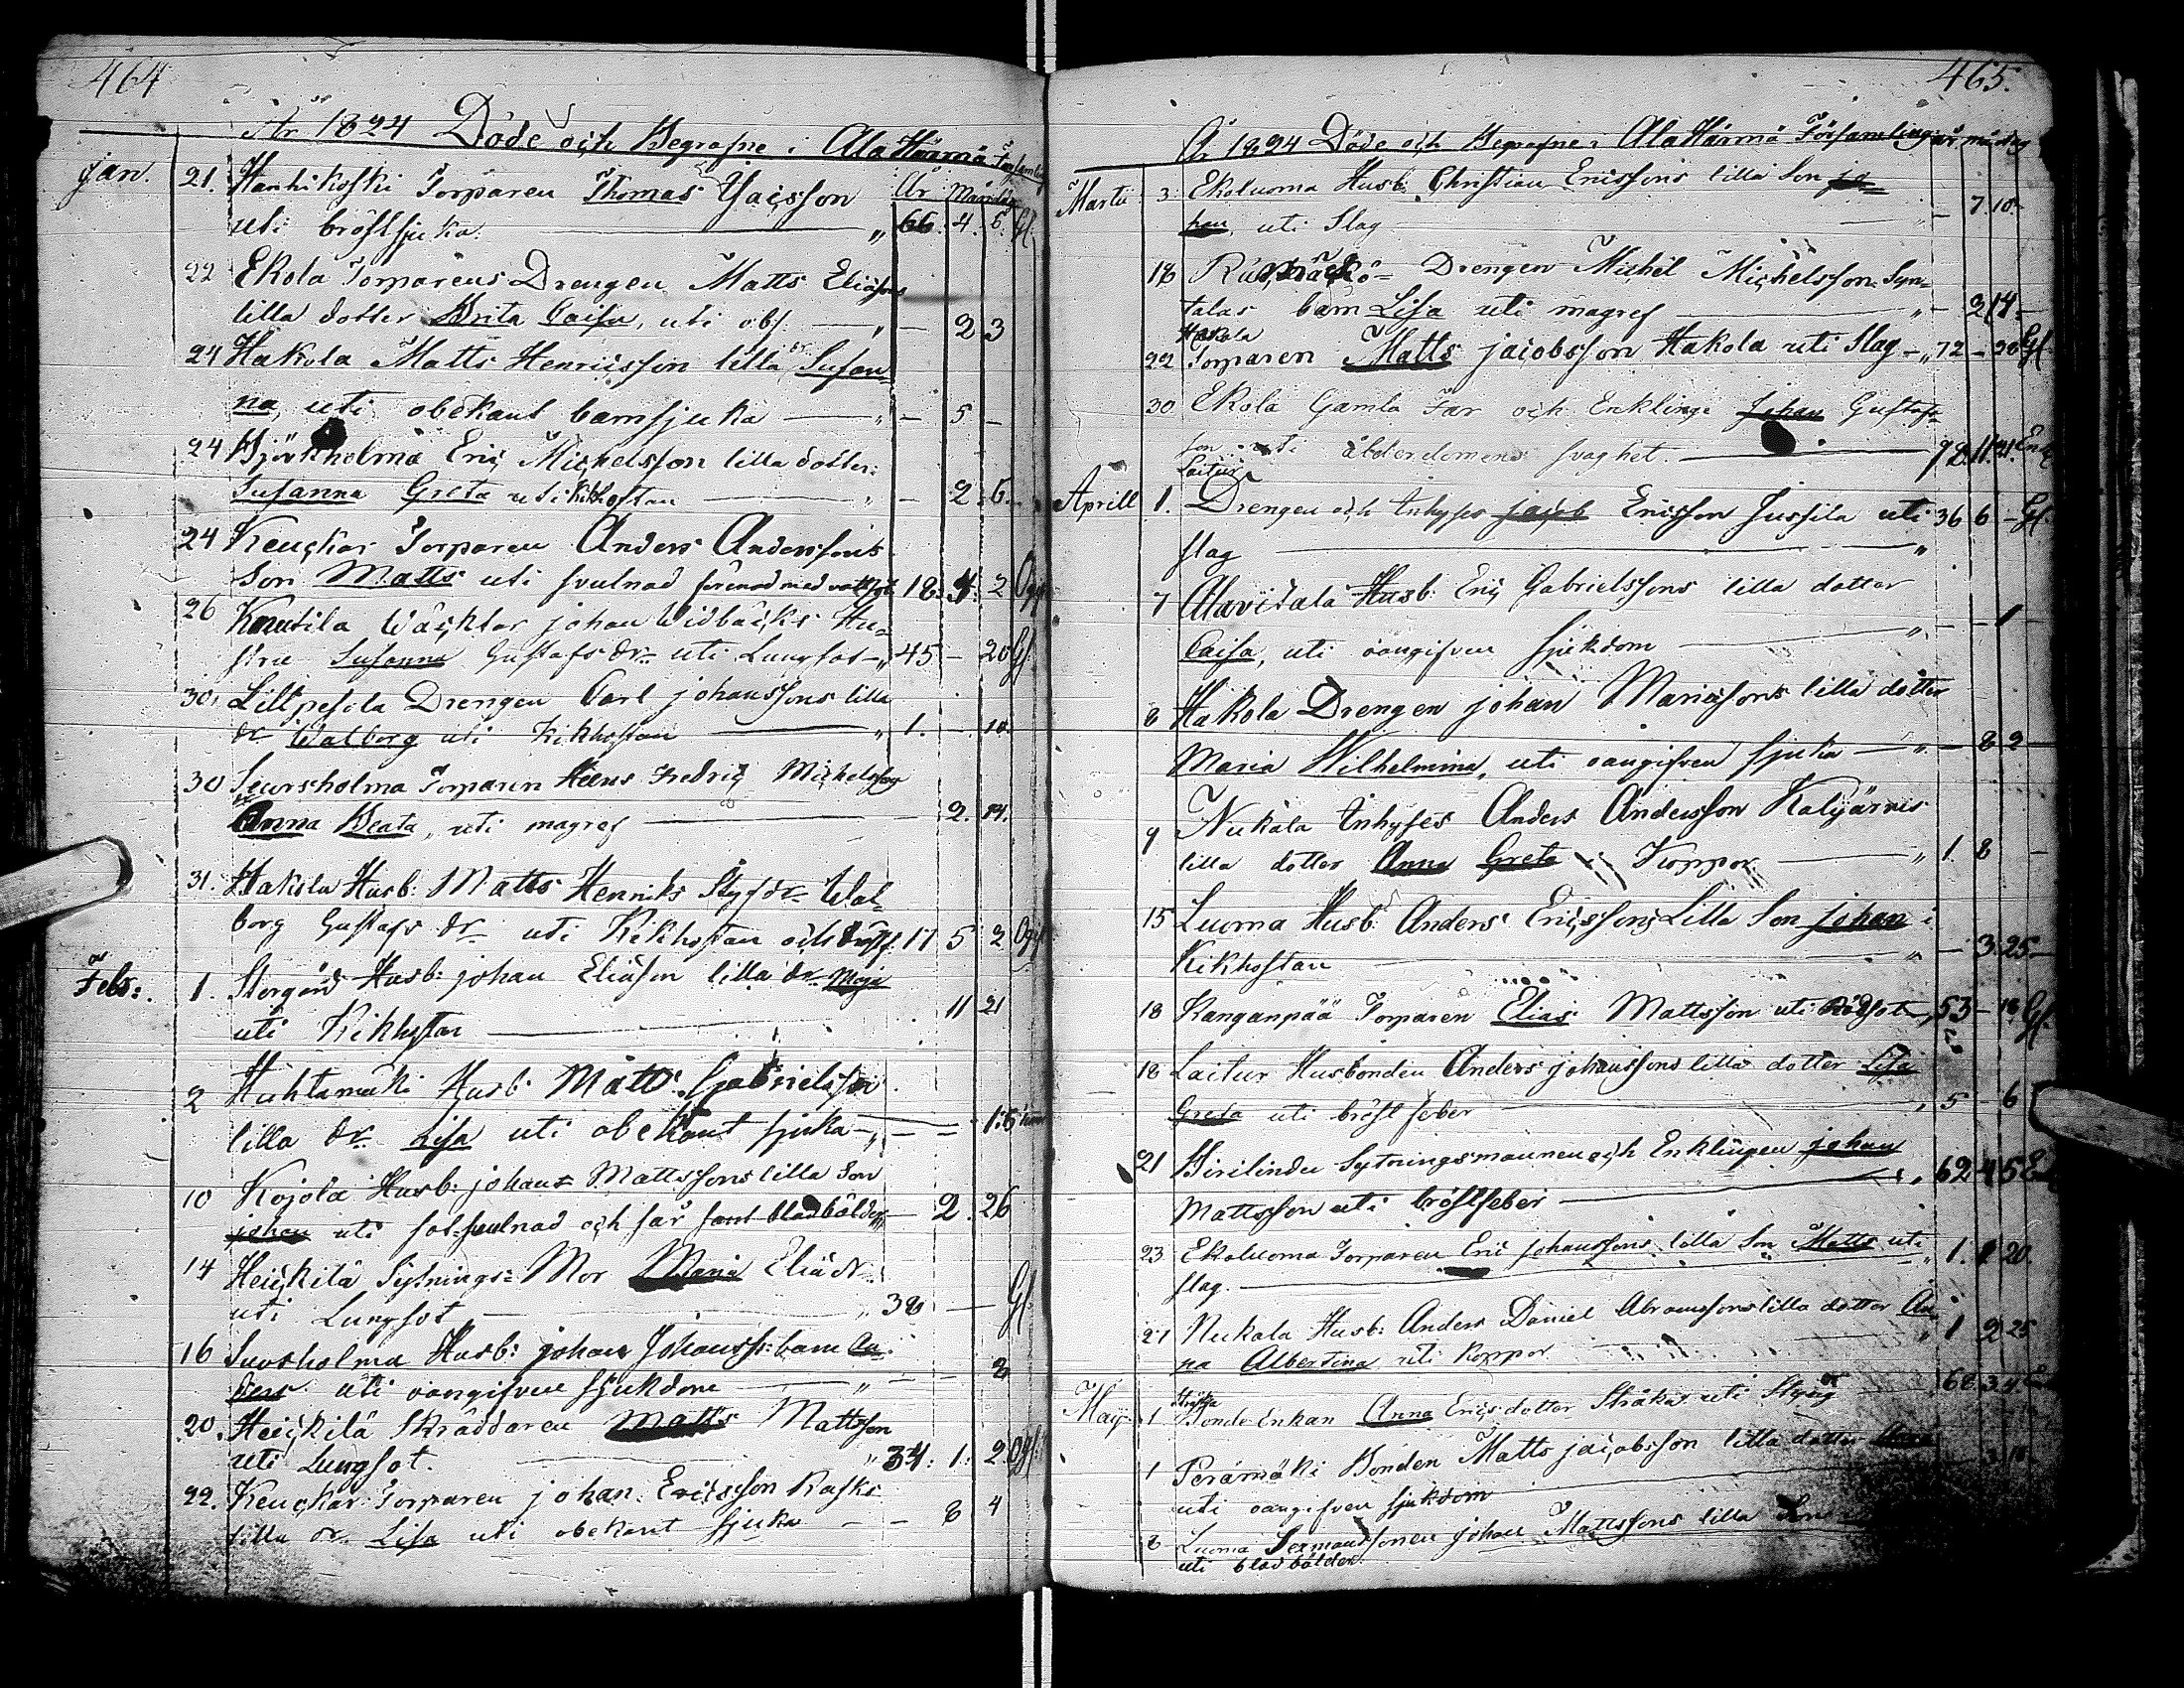 464
År 1824 Döde och Begrafne i Ala Härmä Församling
År Mån dag
Jan. 21. Hanhikoski Torparen Thomas
uti bröstsjuka. " 66. 4. 5. Gf.
22 Ekola Torparens Drengen Matts Eliäsons
lilla dotter Brita Caisa, uti obs. " — 2 3
24 Hakola Matts Henricsson lilla dr Susan¬
na, uti obekant barnsjuka — " — 5 —
24 Björkholma Eric Michelsson lilla dotter:
Susanna Greta uti Kikhostan " — 2. 6. —
24 Keuckar Torparen Anders Anderssons
Son Matts uti svulnad förenad med vattsot 18. 4. 2 Ogf
26 Knuutila Wäcktar johan Widbäcks Hu¬
stru Susanna Gustafs dr uti Lungsot — " 45 — 20 Gf.
30. Liltpesola Drengen Carl johanssons lilla
dr Walborg uti Kikhostan — " 1. — 10.
30 Seursholma Torparen Hens Fredric Michelsson
Anna Beata, uti magref — 2. 14.
31. Hakola Husb: Matts Henriks Styfdr Wal¬
borg Gustafs dr uti Kikhostan och 17 5 2 Ogf
Febr: 1. Storgård Husb: johan Eliäson lilla dr Maja
uti Kikhostan — 11 21
2 Huhtamäki Husb. Matts Gabrielsson
lilla dr Lisa uti obekant sjuka — " — —
10 Kojola Husb: johans Mattssons lilla Son
johan uti sot-svulnad och får samt bladbölder — 2. 26
14 Heickilä Sytnings= Mor Maria Eliädr
uti Lungsot — " 38 — Gf
16 Suvsholma Husb: johan Johanss: barn An¬
ders uti oangifven sjukdom — " — — 2
20. Heickilä Skräddaren Matts Mattsson
uti Lungsot. " 34: 1: 2 Ogf.
22. Keuckar Torparen johan Ericsson Rasks
lilla dr Lisa uti obekant sjuka — — 8 4
465.
År 1824 Döde och Begrafne i Ala Härmä Församling år mån dag
Martii 3. Ekoluoma Husb: Christian Ericssons lilla Son jo¬
han, uti Slag — 7. 10.
18 Drengen Michel Michelsson Syn¬
talas barn Lisa uti magref — " — 2 14. —
Hakola
22 Torparen Matts jacobsson Hakola uti Slag — " 72 — 20 Gf.
30 Ekola Gamla Far och Enklinge Johan Gustafs¬
son uti ålderdomens svaghet — 78. 11. 21. Enk
Laitur
Aprill 1. Drengen och Inhyses jacob Ericsson Jussila uti 36 6 — Gf.
slag — "
7 Alaviitala Husb: Eric Gabrielssons lilla dotter
Caisa, uti oangifven sjukdom — " — — 1
8 Hakola Drengen johan Mariassons lilla dotter
Maria Wilhelmina, uti oangifven sjuka — " — 8 2 —
9 Nukala Inhyses Anders Andersson Kalijärvis
lilla dotter Anna Greta i Koppor — " 1. 8 —
15 Luoma Husb: Anders Ericssons Lilla Son johan i
Kikhostan — " — 3. 25 —
18 Kanganpää Torparen Elias Mattsson uti Rödsot — 53 — 18 Gf.
18 Laitur Husbonden Anders johanssons lilla dotter Lisa
Greta uti bröst feber — " 5 — 6
21 Hirilindu Sytningsmannen och Enklingen johan
Mattsson uti bröstfeber — " 62 4 5 Enk
23 Ekoluoma Torparen Eric johanssons lilla Son Matts uti
slag. — " 1. 2 20.
27 Nukala Husb: Anders Daniel Abramssons lilla dotter An
na Albertina uti Koppor — " 1 2 25
Stråka
Maij 1 Bonde Enkan Anna Erics dotter Stråka uti Styng — 68. 3. 4.
1 Perämäki Bonden Matts jacobsson lilla dotter
uti oangifven sjukdom — 3 18
8 Luoma Sexmanssonen johan Mattssons lilla Son
uti bladbölder.